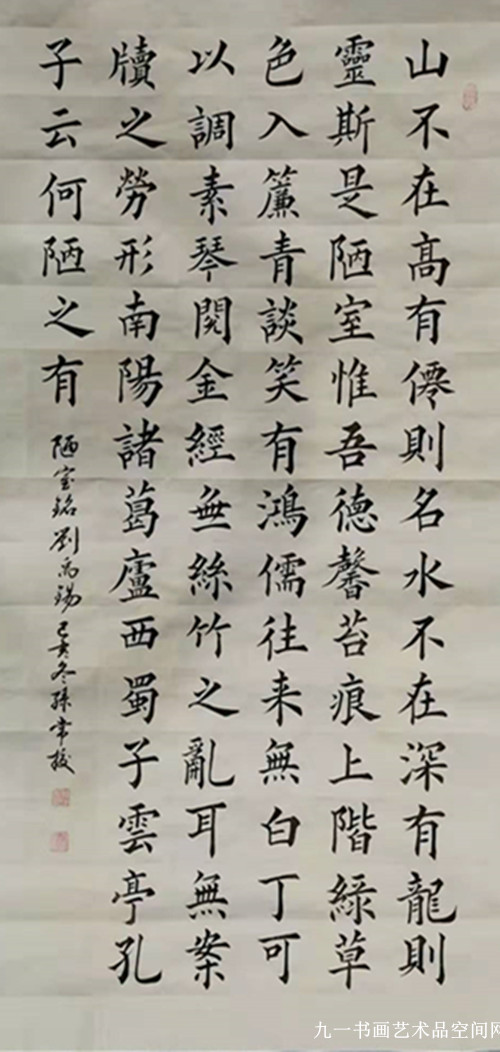 山不在髙有僊則名水不在深有龍則
靈斯是陋室惟吾德馨苔痕上階緑草
色入簾青談笑有鴻儒往来無白丁可
以調素琴閱金經無絲竹之亂耳無案
牘之勞形南陽諸葛廬西蜀子雲亭孔
子云何陋之有
陋室銘劉禹錫己亥冬孫常
九一书画艺术品空间网